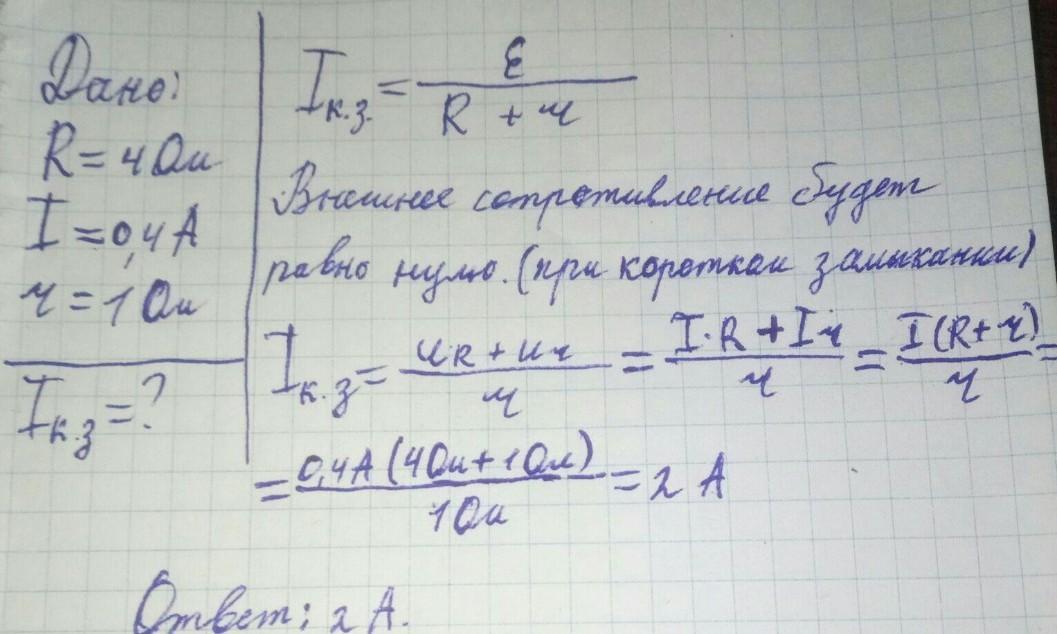 Дано:
R = 4 Ом
I = 0,4 А
r = 1 Ом
Iк.з = ?
Iк.з. = ε / (R + r)
Внешнее сопротивление будет
равно нулю. (при коротком замыкании)
Iк.з = (UR + Ur) / r = (I·R + Ir) / r = I(R + r) / r =
= 0,4А (4Ом + 1Ом) / 1Ом = 2 А
Ответ: 2 А.